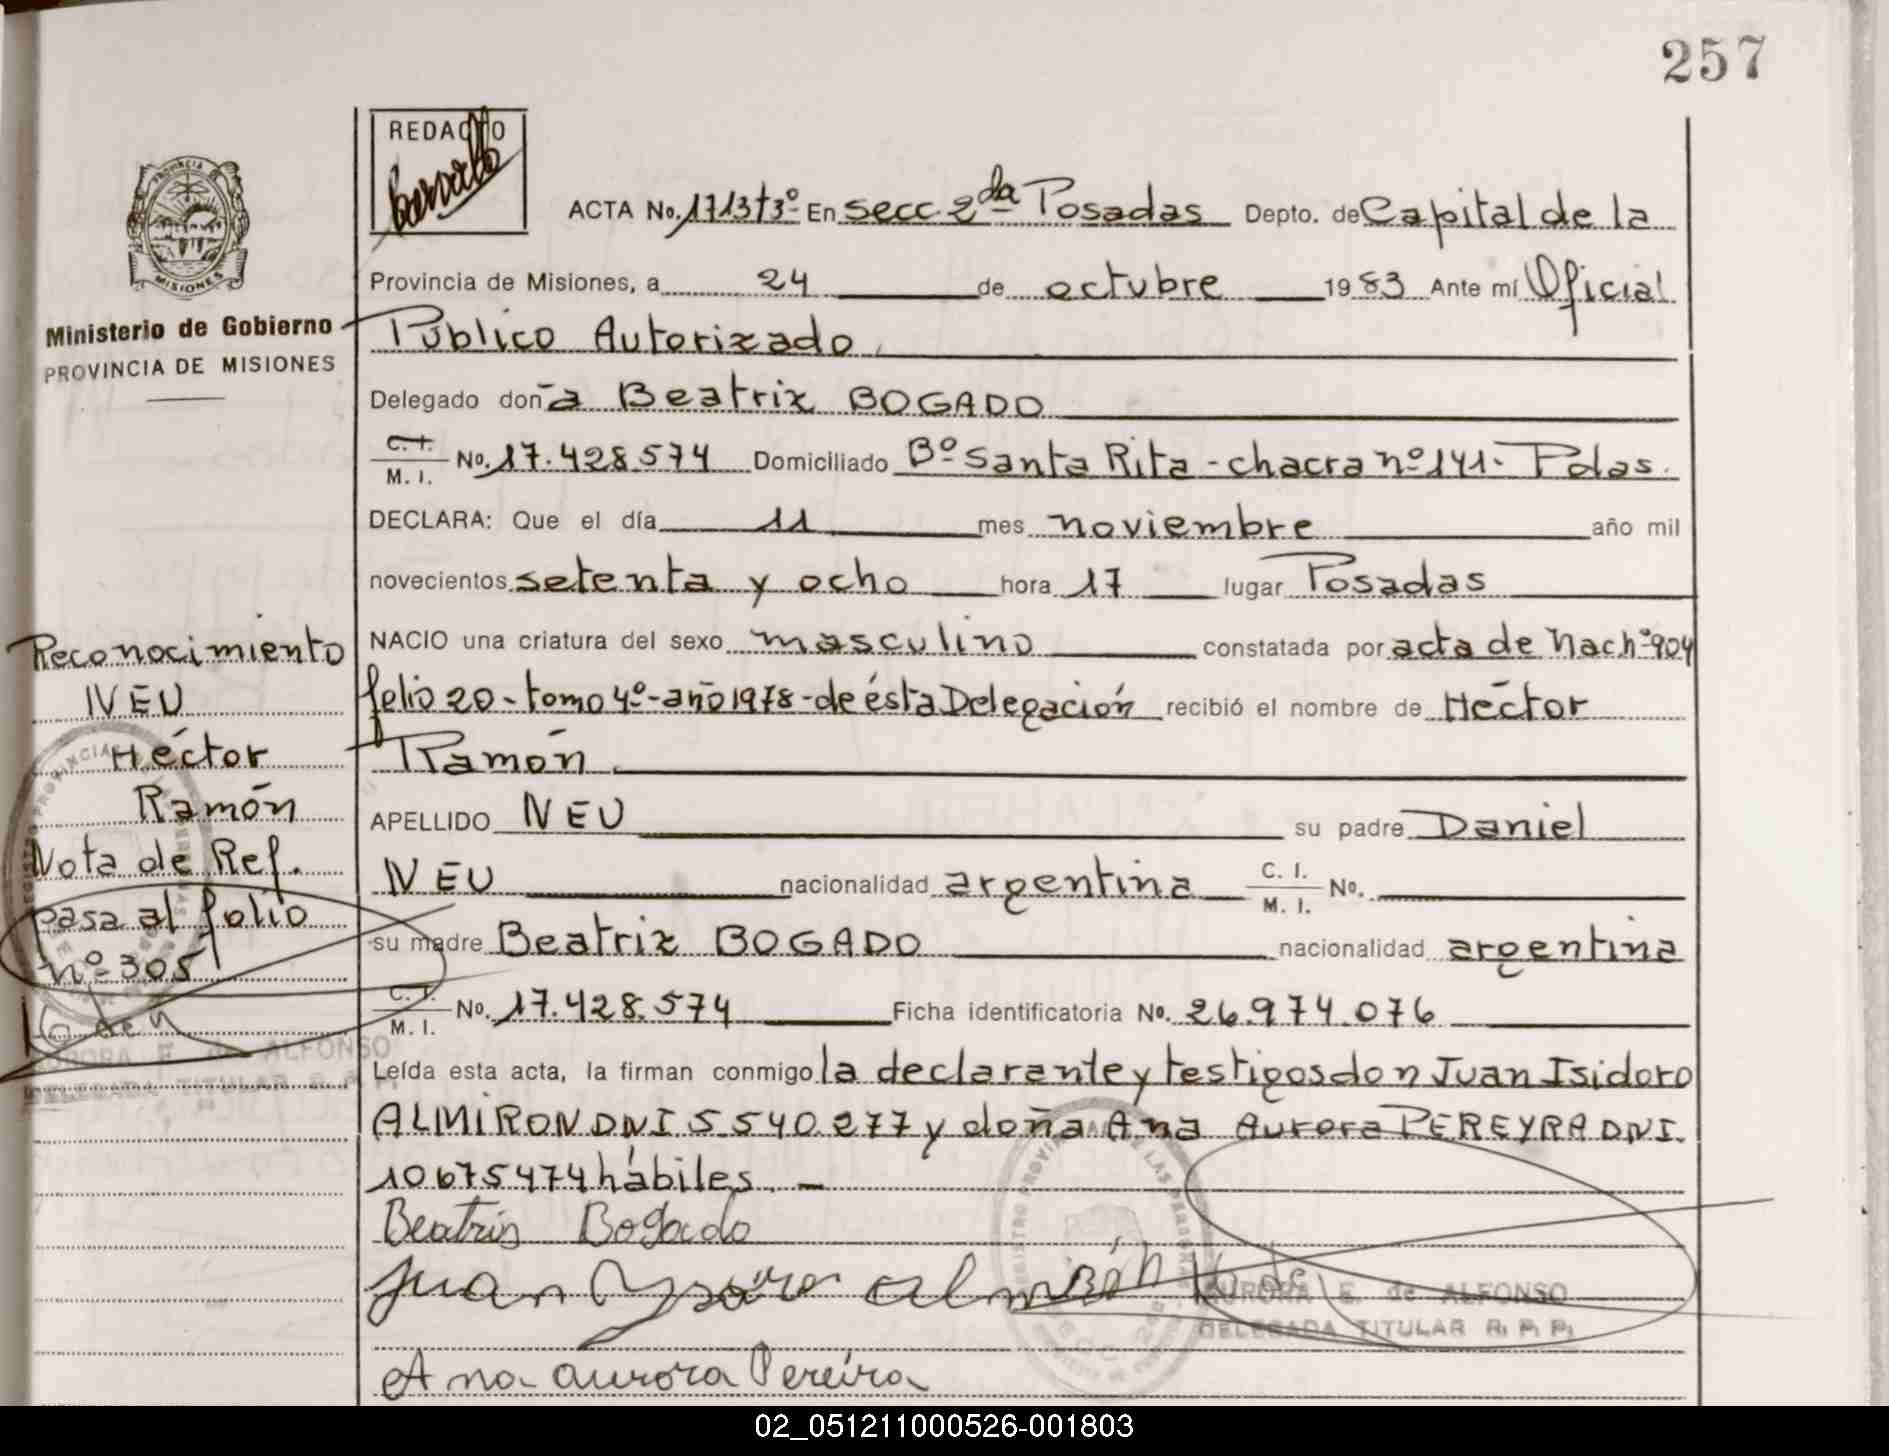 257
REDACTO
PROVINCIA DE
MISIONES
ACTA No. 1713 t3º En secc 2da Posadas Depto. de Capital de la
Provincia de Misiones, a 24 de octubre 1983 Ante mí Oficial
Público Autorizado
Ministerio de Gobierno
PROVINCIA DE MISIONES
Delegado doña Beatriz BOGADO
C. I. M. I. No. 17.428.574 Domiciliado Bº Santa Rita - chacra nº 141. Pdas.
DECLARA: Que el día 11 mes noviembre año mil
novecientos setenta y ocho hora 17 lugar Posadas
NACIO una criatura del sexo masculino constatada por acta de Nac nº 904
folio 20 - tomo 4º - año 1978 - de ésta Delegación recibió el nombre de Héctor
Ramón
APELLIDO NEU su padre Daniel
NEU nacionalidad argentina C. I. M. I. No.
su madre Beatriz BOGADO nacionalidad argentina
C. I. M. I. No. 17.428.574 Ficha identificatoria No. 26.974.076
Leída esta acta, la firman conmigo la declarante y testigos don Juan Isidoro
ALMIRON DNI 5.540.277 y doña Ana Aurora PEREYRA DNI.
10675474 hábiles. -
Beatris Bogado
Juan Ysidro almirón
AURORA E. de ALFONSO
DELEGADA TITULAR R. P. P.
Ana aurora Pereira
Reconocimiento
NEU
Héctor
Ramón
Nota de Ref.
pasa al folio
nº 305
AURORA E. de ALFONSO
DELEGADA TITULAR R. P. P.
02_051211000526-001803